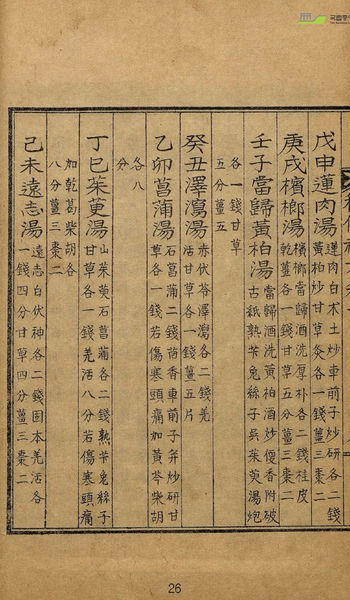 戊申蓮肉湯 蓮肉白朮土炒車前子炒研各二錢
黃柏炒甘草灸各一錢薑三棗二
庚戌檳榔湯 檳榔當歸酒洗厚朴各二錢桂皮
乾薑各一錢甘草五分薑三棗二
壬子當歸黃柏湯 當歸酒洗黃柏酒炒便香附破
古紙熟苄兔絲子吳茱萸湯炮
各一錢甘草
五分薑五
癸丑澤瀉湯 赤伏苓澤瀉各二錢羌
活甘草各一錢薑五片
乙卯菖蒲湯 石菖蒲二錢茴香車前子并炒研甘
草各一錢若傷寒頭痛加黃芩柴胡
各八
分
丁巳茱萸湯 山茱萸石菖蒲各二錢熟苄兔絲子
甘草各一錢羌活八分若傷寒頭痛
加乾葛柴胡各
八分薑三棗二
己未遠志湯 遠志白伏神各二錢固本羌活各
一錢四分甘草四分薑三棗二
26